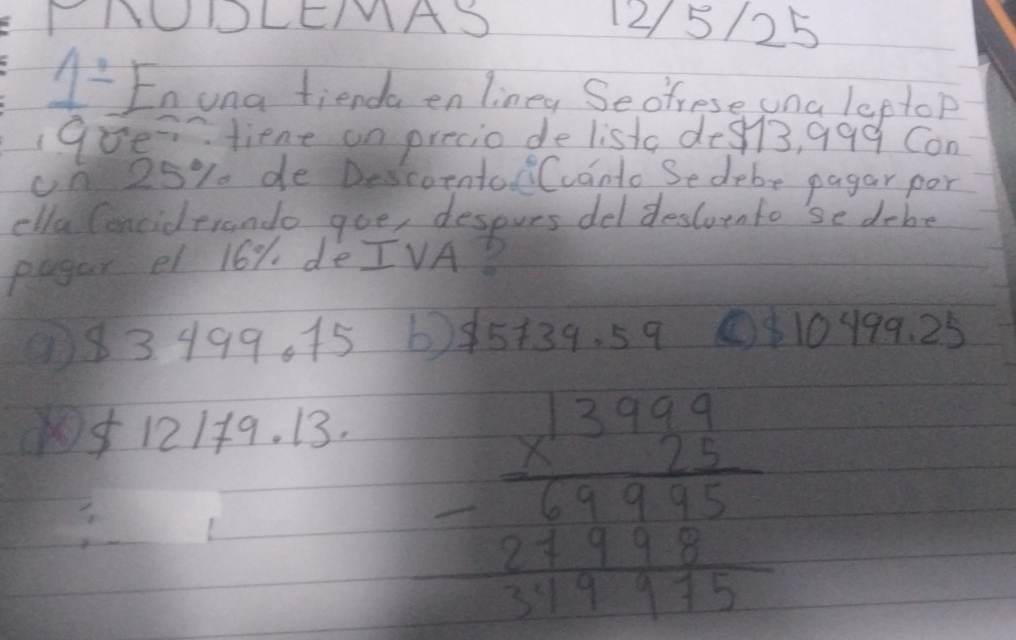 PROBLEMAS 12/5/25
1- En una tienda en linea Se ofrese una laptop
que tiene un precio de lista de $13,999 Con
un 25% de Descuento. ¿Cuánto Se debe pagar por
ella Conciderando que, despues del descuento se debe
pagar el 16% de IVA?
a) $3499.75 b) $5739.59 c) $10499.25
d) $12179.13.
13999
x 25
69995
27998
349975